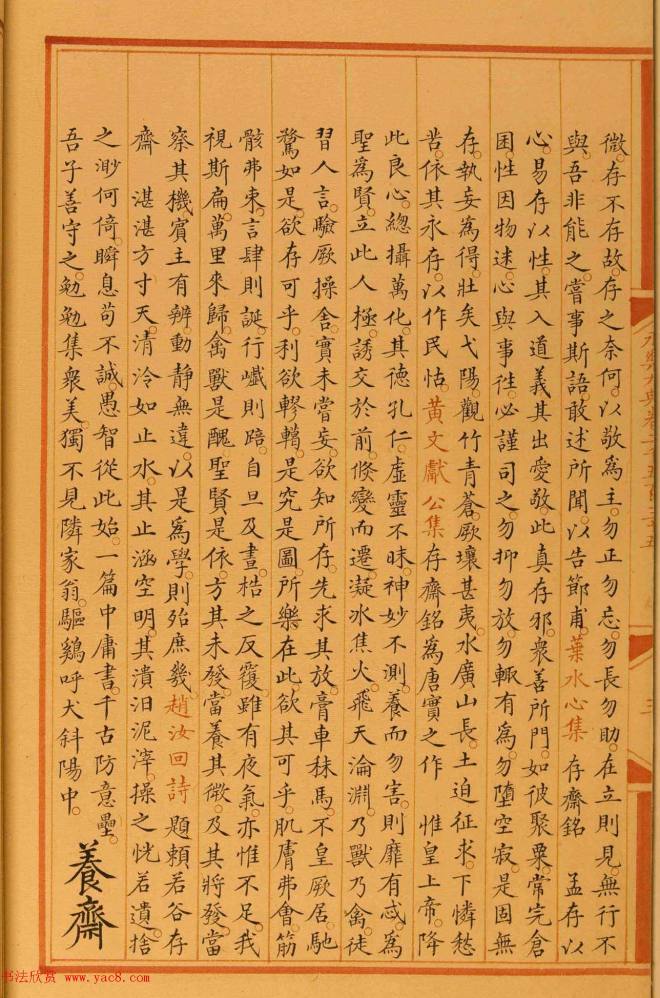 微。存不存故。存之奈何。以敬爲主。勿正勿忘。勿長勿助。在立則見。無行不
與。吾非能之。嘗事斯語。敢述所聞。以告節甫。葉水心集 存齋銘 孟存以
心。易存以性。其入道義。其出愛敬。此真存邪。衆善所門。如彼聚粟。常完倉
困。性因物迷。心與事徃。必謹司之。勿抑勿放。勿輙有爲。勿墮空寂。是固無
存。執妄爲得。壯矣弋陽。觀竹青蒼。厥壤甚夷。水廣山長。土迫征求。下憐愁
苦。依其永存。以作民怙。黄文獻公集 存齋銘爲唐實之作 惟皇上帝。降
此良心。緫攝萬化。其德孔仁。虛靈不昧。神妙不測。養而勿害。則靡有忒。爲
聖爲賢。立此人極。誘交於前。倐變而遷。凝氷焦火。飛天淪淵。乃獸乃禽。徒
習人言。驗厥操舍。實未嘗妄。欲知所存。先求其放。膏車秣馬。不皇厥居。馳
騖如是。欲存可乎。利欲轇轕。是究是圖。所樂在此。欲其可乎。肌膚弗會。筋
骸弗束。言肆則誕。行巇則踣。自旦及晝。梏之反覆。雖有夜氣。亦惟不足。我
視斯扁。萬里來歸。禽獸是醜。聖賢是依。方其未發。當養其微。及其將發。當
察其機。賓主有辨。動静無違。以是爲學。則殆庶幾。趙汝回詩 題頼若谷存
齋 湛湛方寸天。清泠如止水。其止涵空明。其潰汨泥滓。操之恍若遺。捨
之渺何倚。瞬息苟不誠。愚智從此始。一篇中庸書。千古防意壘。
吾子善守之。勉勉集衆美。獨不見隣家翁。驅鷄呼犬斜陽中。 養齋
永樂大典卷二千五百三十五
三
书法欣赏 www.yac8.com